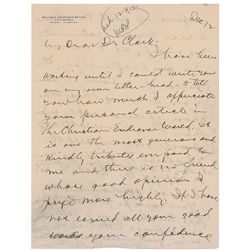 WILLIAM JENNINGS BRYAN
Dec 12
My Dear Dr Clark:
I have been
waiting until I could write you
on my own letter-head to tell
you how much I appreciate
your personal article in
the Christian Endeavor World. It
is one the most generous and
kindly tributes ever paid to
me and there is no friend
whose good opinion I
prize more highly. If I have
not earned all your good
words your confidence